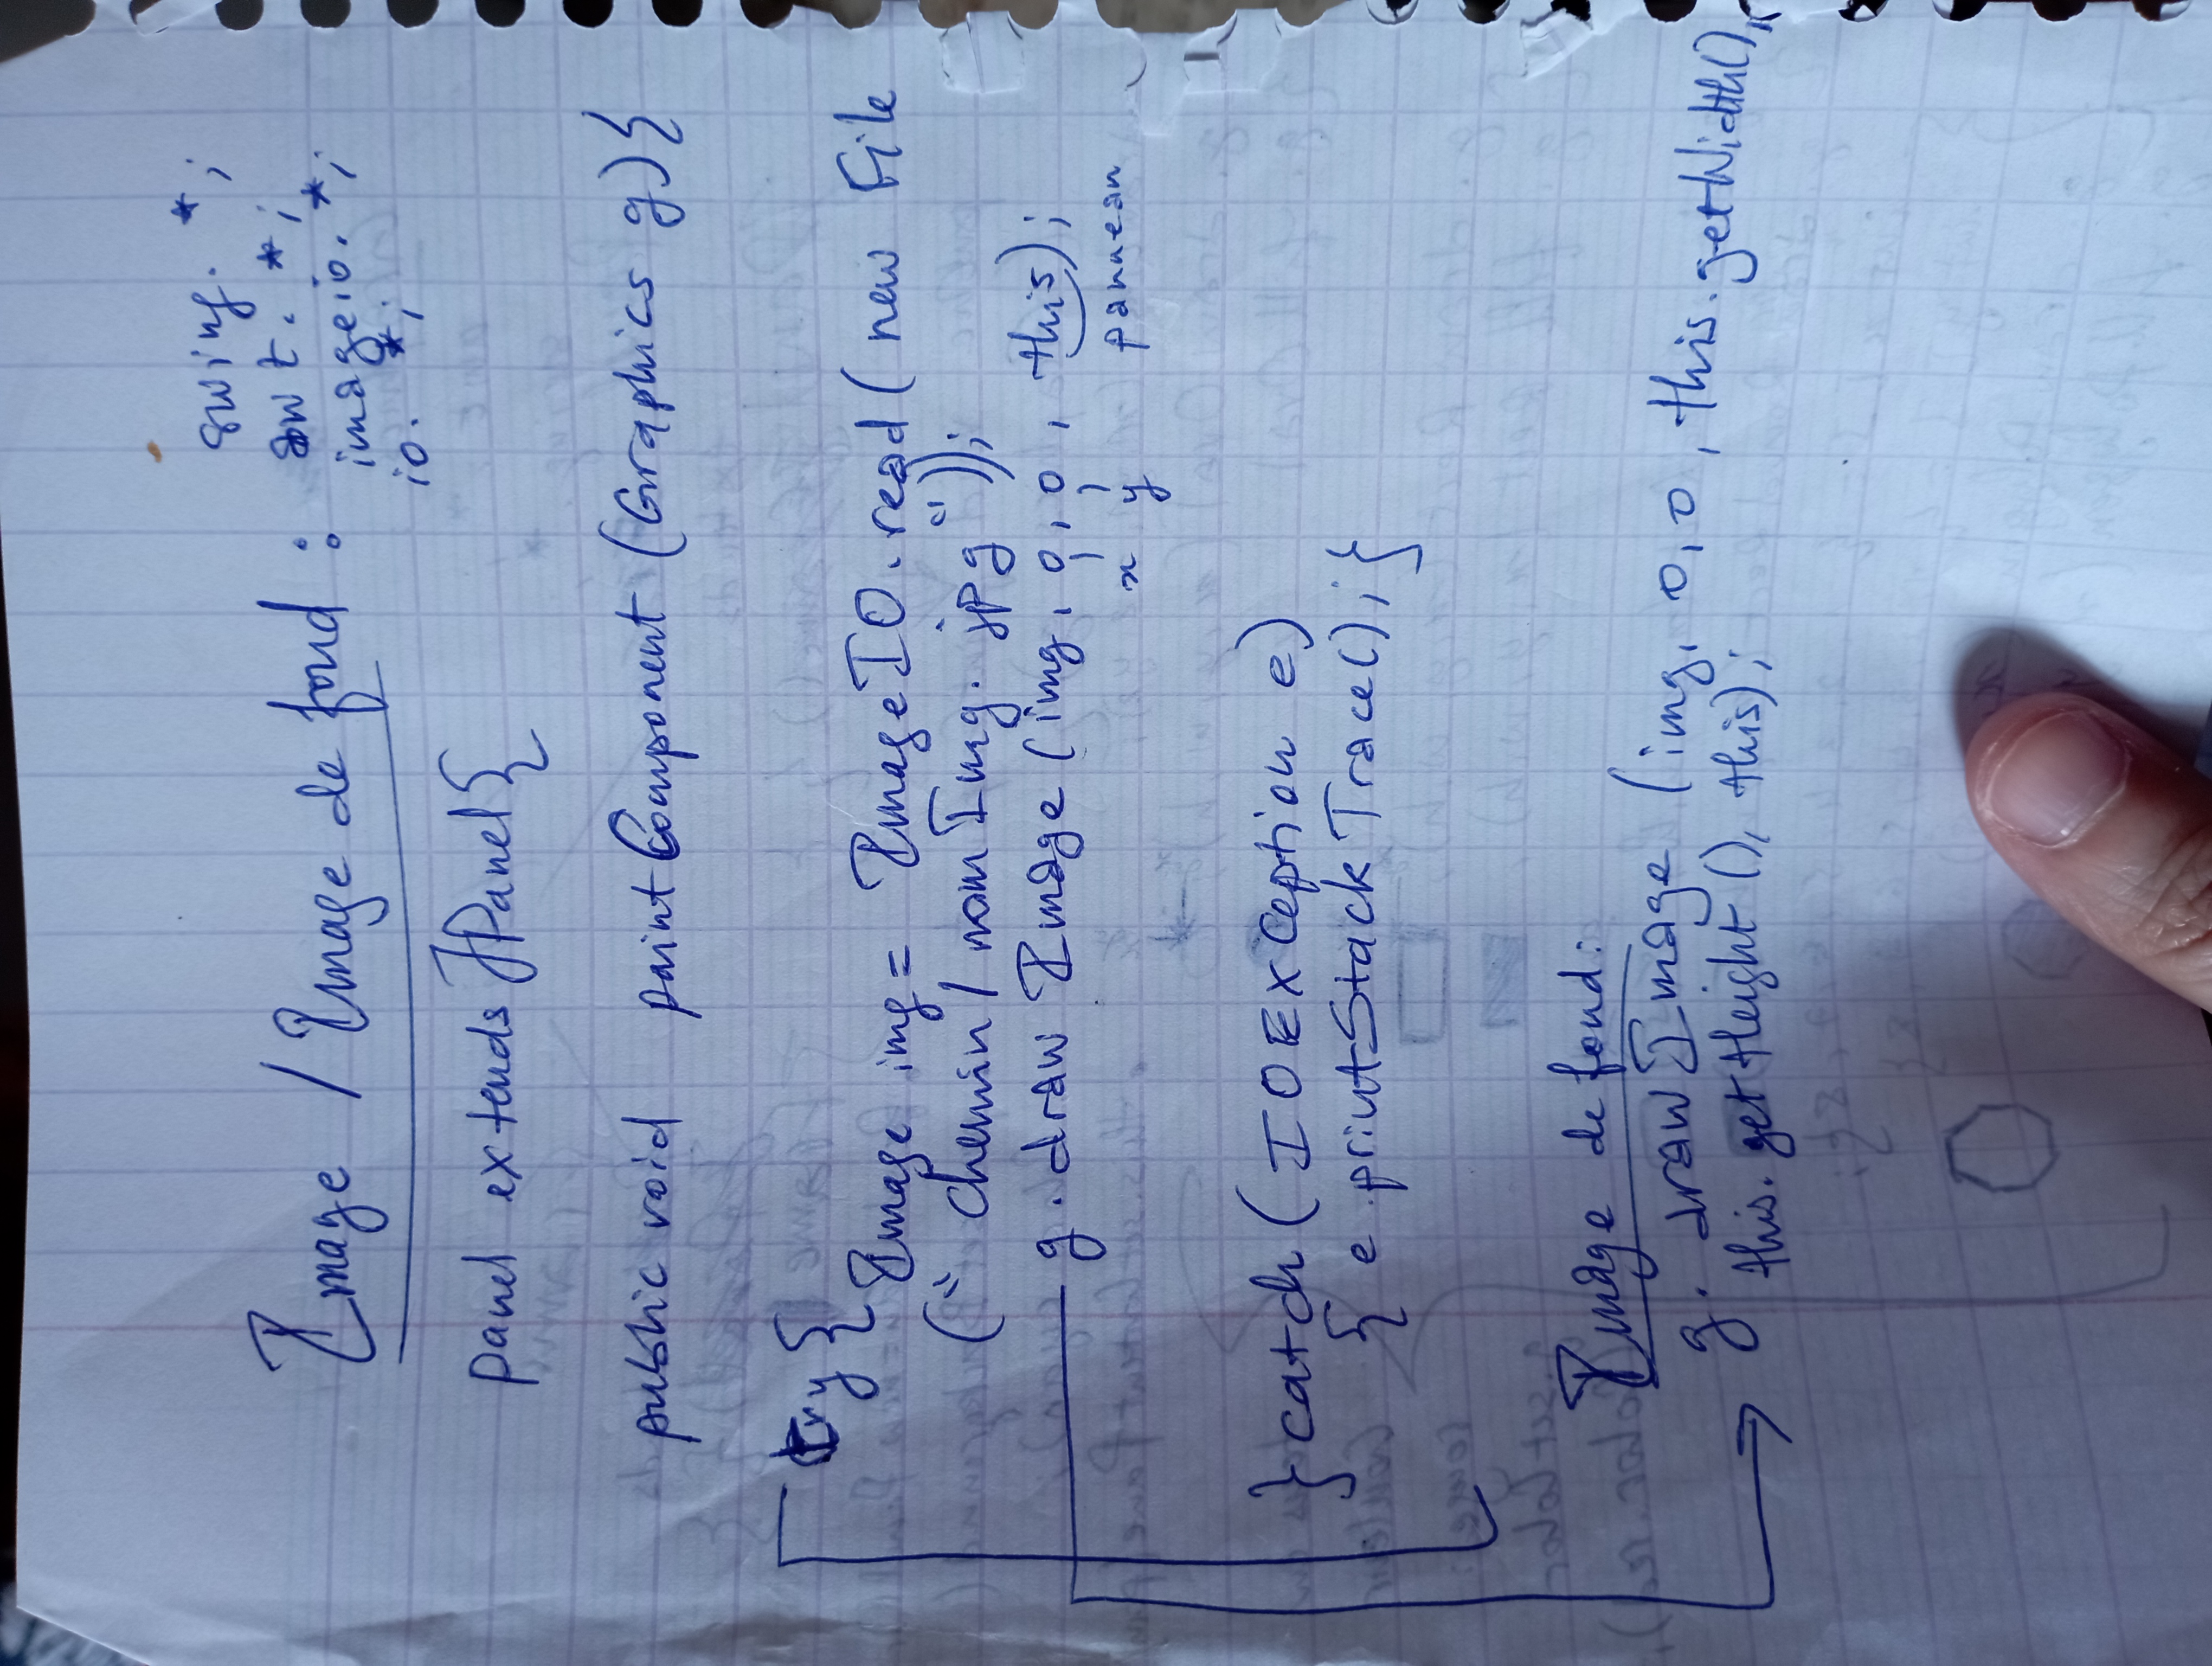 swing. *;
awt. *;
imageio. *;
io. *;
Image / Image de fond :
panel extends JPanel{
public void paintComponent (Graphics g){
try {
Image img = ImageIO.read( new File
(" chemin / nomImg. jpg "));
g. draw Image (img, 0, 0, this);
x y panneau
} catch ( IOException e)
{ e.printStackTrace(); }
Image de fond:
g. drawImage (img, 0, 0, this.getWidth(),
this.getHeight (), this);